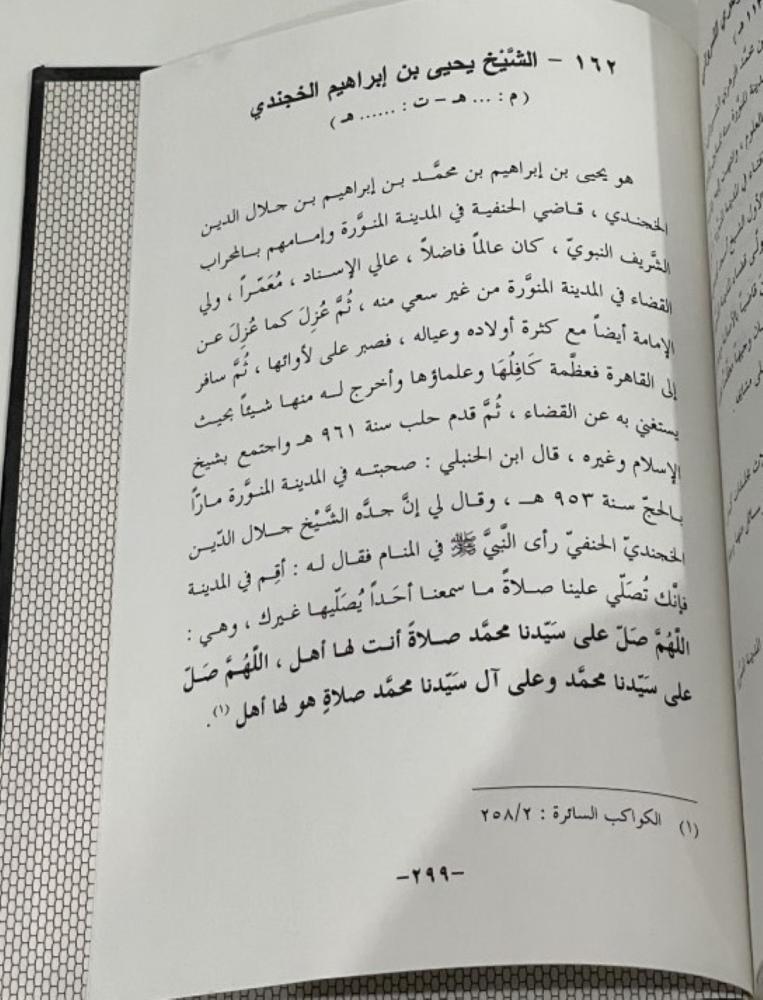 ١٦٢ – الشَّيْخ يحيى بن إبراهيم الخجندي
(م: ... هـ – ت: ...... هـ)
هو يحيى بن إبراهيم بن محمَّد بن إبراهيم بن جلال الدين
الخجندي ، قاضي الحنفية في المدينة المنوَّرة وإمامهم بالمحراب
الشَّريف النبويّ ، كان عالماً فاضلاً ، عالي الإسناد ، مُعَمّراً ، ولي
القضاء في المدينة المنوَّرة من غير سعي منه ، ثُمَّ عُزِلَ كما عُزِلَ عن
الإمامة أيضاً مع كثرة أولاده وعياله ، فصبر على لأوائها ، ثُمَّ سافر
إلى القاهرة فعظَّمة كَافِلُهَا وعلماؤها وأخرج له منها شيئاً بحيث
يستغني به عن القضاء ، ثُمَّ قدم حلب سنة ٩٦١ هـ واجتمع بشيخ
الإسلام وغيره ، قال ابن الحنبلي : صحبته في المدينة المنوَّرة مارًّا
بالحجّ سنة ٩٥٣ هـ ، وقال لي إنَّ جدَّه الشَّيْخ جلال الدّين
الخجنديّ الحنفيّ رأى النَّبيَّ ﷺ في المنام فقال له : أقِم في المدينة
فإنَّك تُصَلّي علينا صلاةً ما سمعنا أحَداً يُصَلّيها غيرك ، وهي :
اللَّهُمَّ صَلّ على سَيّدنا محمَّد صلاةً أنت لها أهل ، اللَّهُمَّ صَلّ
على سَيّدنا محمَّد وعلى آل سَيّدنا محمَّد صلاةِ هو لها أهل (١).
(١) الكواكب السائرة : ٢٥٨/٢
–٢٩٩–